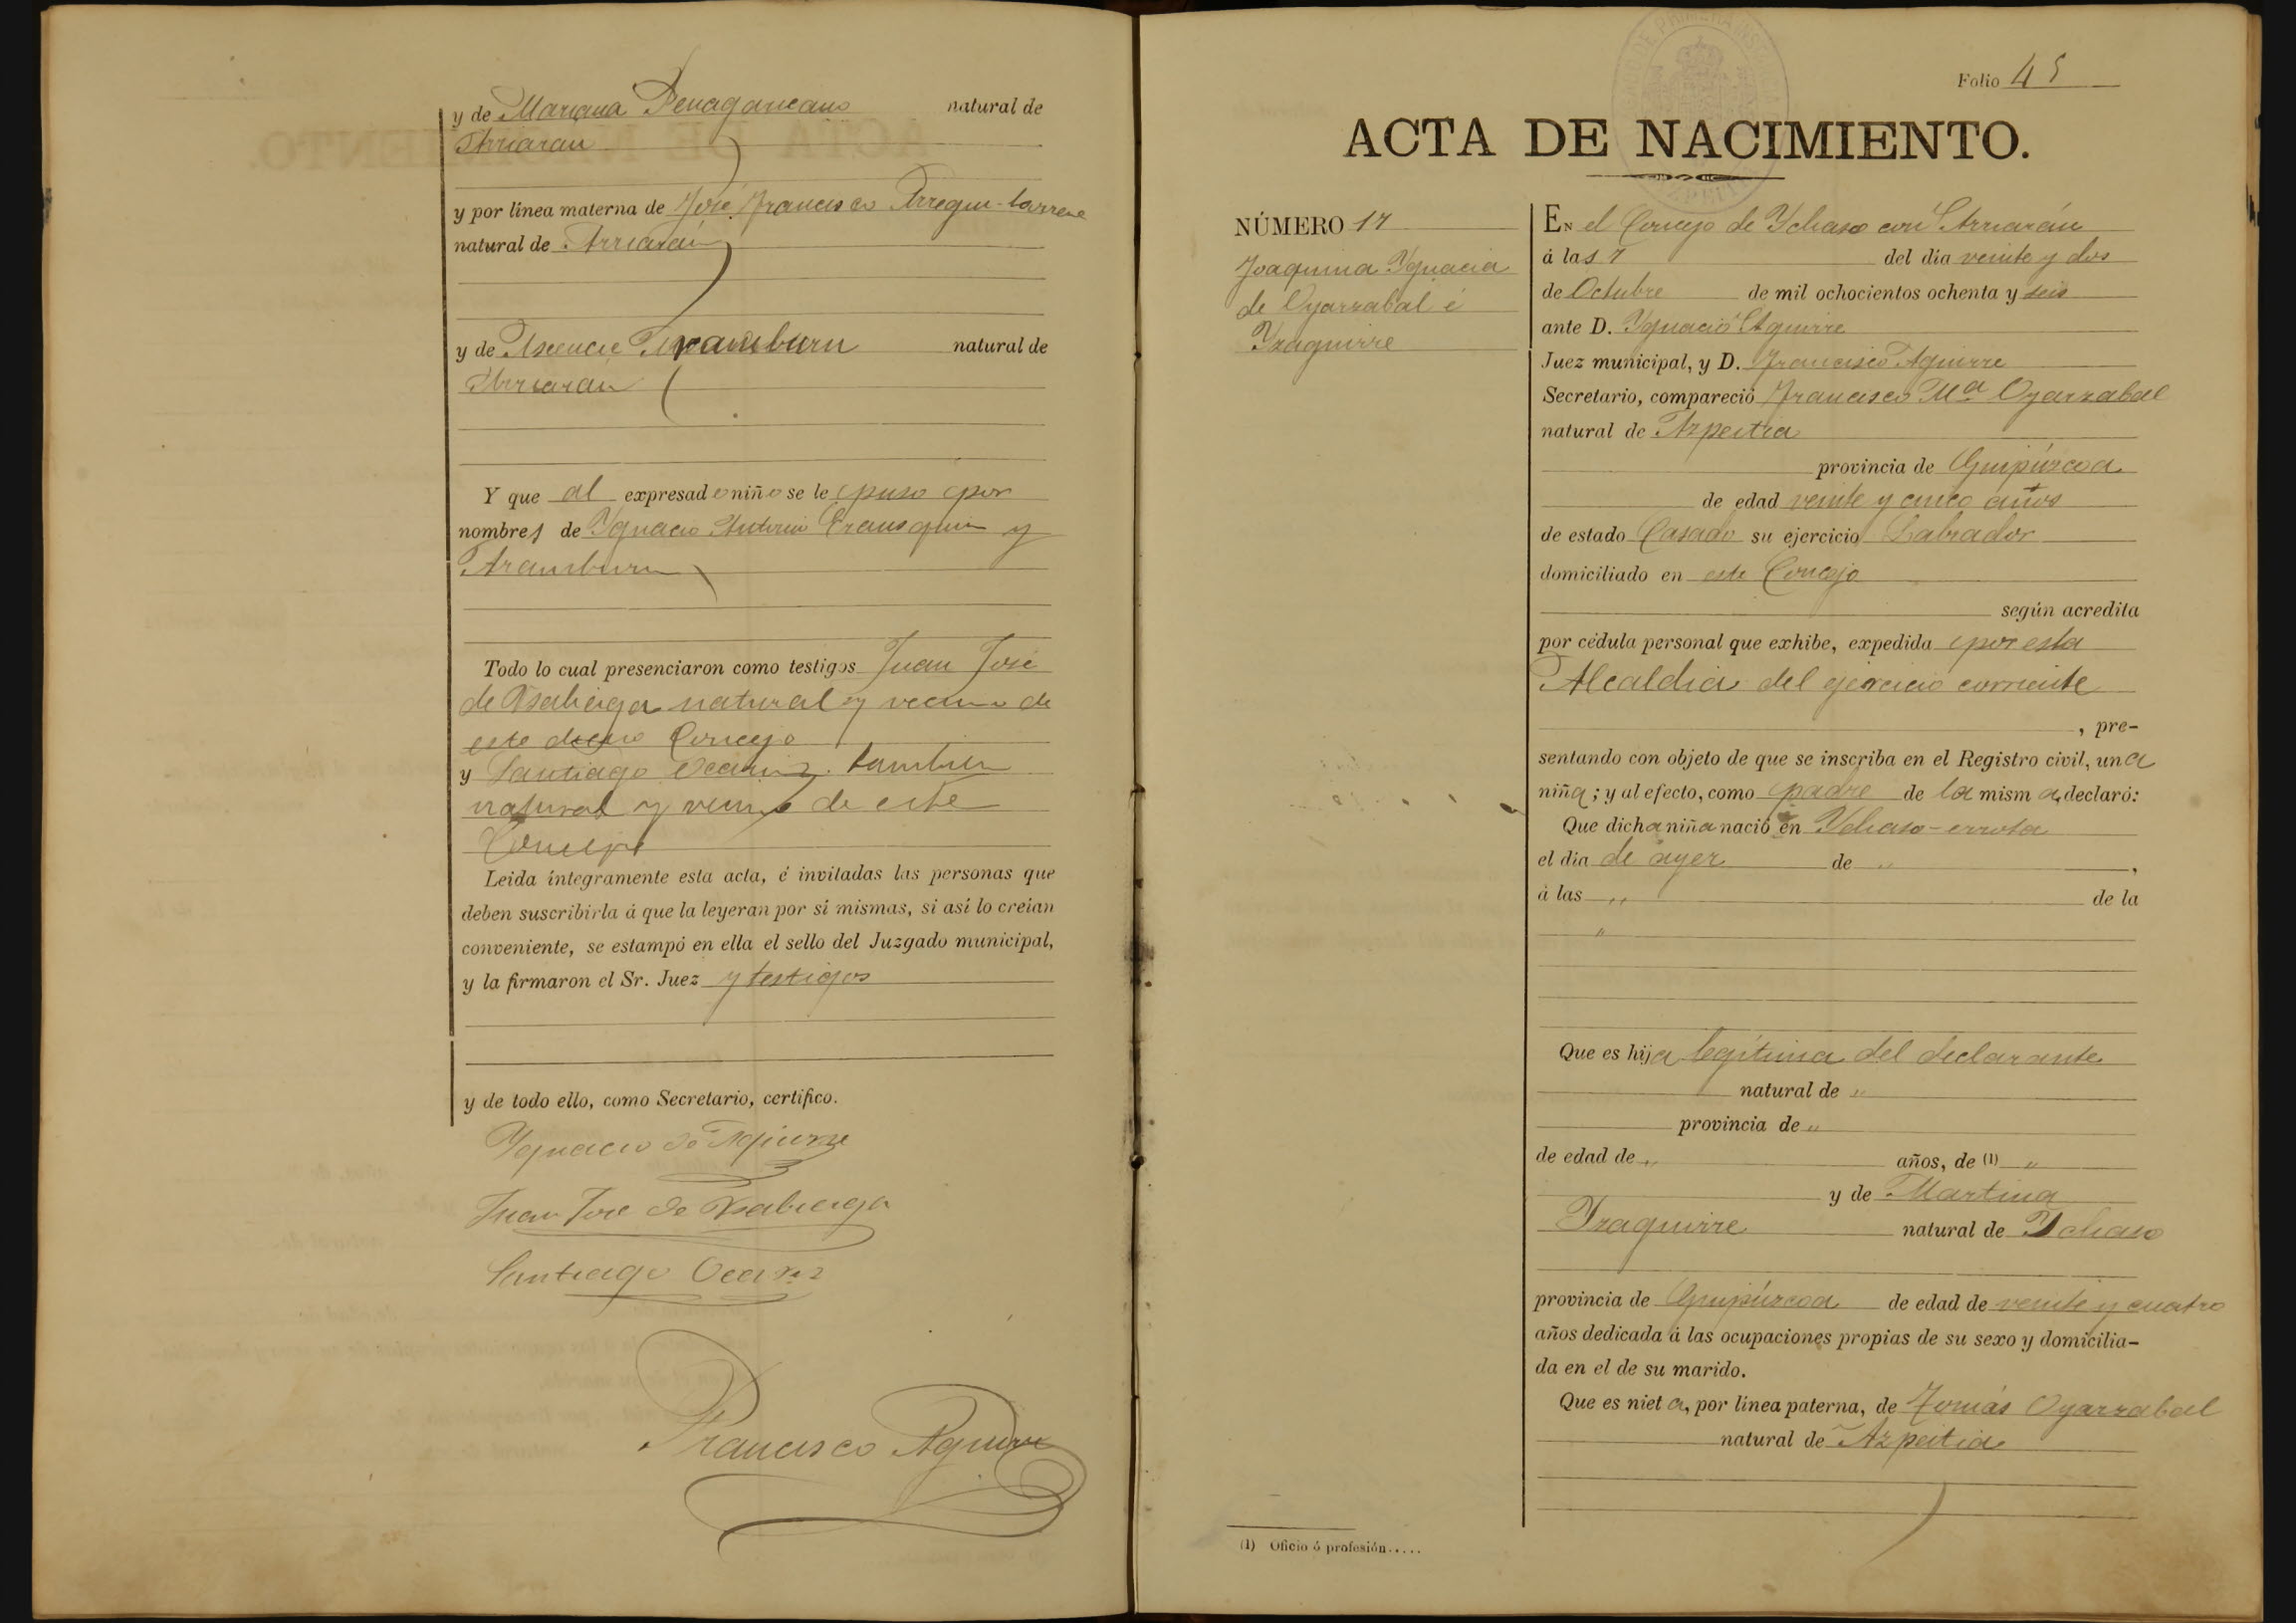 y de Mariana Penagaricano natural de
Arriaran
y por línea materna de José Francisco Arregui-
natural de Arriarán
y de Ascencia Aramburu natural de
Arriarán
Y que al expresado niño se le puso por
nombres de Ygnacio Antonio y
Aramburu
Todo lo cual presenciaron como testigos Juan José
de natural y vecino de
este dicho Concejo
y Santiago Ocariz tambien
natural y vecino de este
Concejo
Leida íntegramente esta acta, é invitadas las personas que
deben suscribirla á que la leyeran por sí mismas, si así lo creían
conveniente, se estampó en ella el sello del Juzgado municipal,
y la firmaron el Sr. Juez y testigos
y de todo ello, como Secretario, certifico.
Ygnacio de Aguirre
Juan Jose de
Santiago Ocariz
Francisco Aguirre
Folio 45
ACTA DE NACIMIENTO.
NÚMERO 17
Joaquina Ygnacia
de Oyarzabal é
Yzaguirre
EN el Concejo de Ychaso con Arriarán
á las 7 del día veinte y dos
de Octubre de mil ochocientos ochenta y seis
ante D. Ygnacio Aguirre
Juez municipal, y D. Francisco Aguirre
Secretario, compareció Francisco Mª Oyarzabal
natural de Azpeitia
provincia de Guipúzcoa
de edad veinte y cinco años
de estado Casado su ejercicio Labrador
domiciliado en este Concejo
según acredita
por cédula personal que exhibe, expedida por esta
Alcaldia del ejercicio corriente
, pre-
sentando con objeto de que se inscriba en el Registro civil, una
niña; y al efecto, como padre de la misma, declaró:
Que dicha niña nació en Ychaso-errota
el día de ayer de "
á las " de la
"
Que es hija legitima del declarante
natural de "
provincia de "
de edad de " años, de (1) "
y de Martina
Yzaguirre natural de Ychaso
provincia de Guipúzcoa de edad de veinte y cuatro
años dedicada á las ocupaciones propias de su sexo y domicilia-
da en el de su marido.
Que es nieta, por línea paterna, de Tomás Oyarzabal
natural de Azpeitia
(1) Oficio ó profesión.....